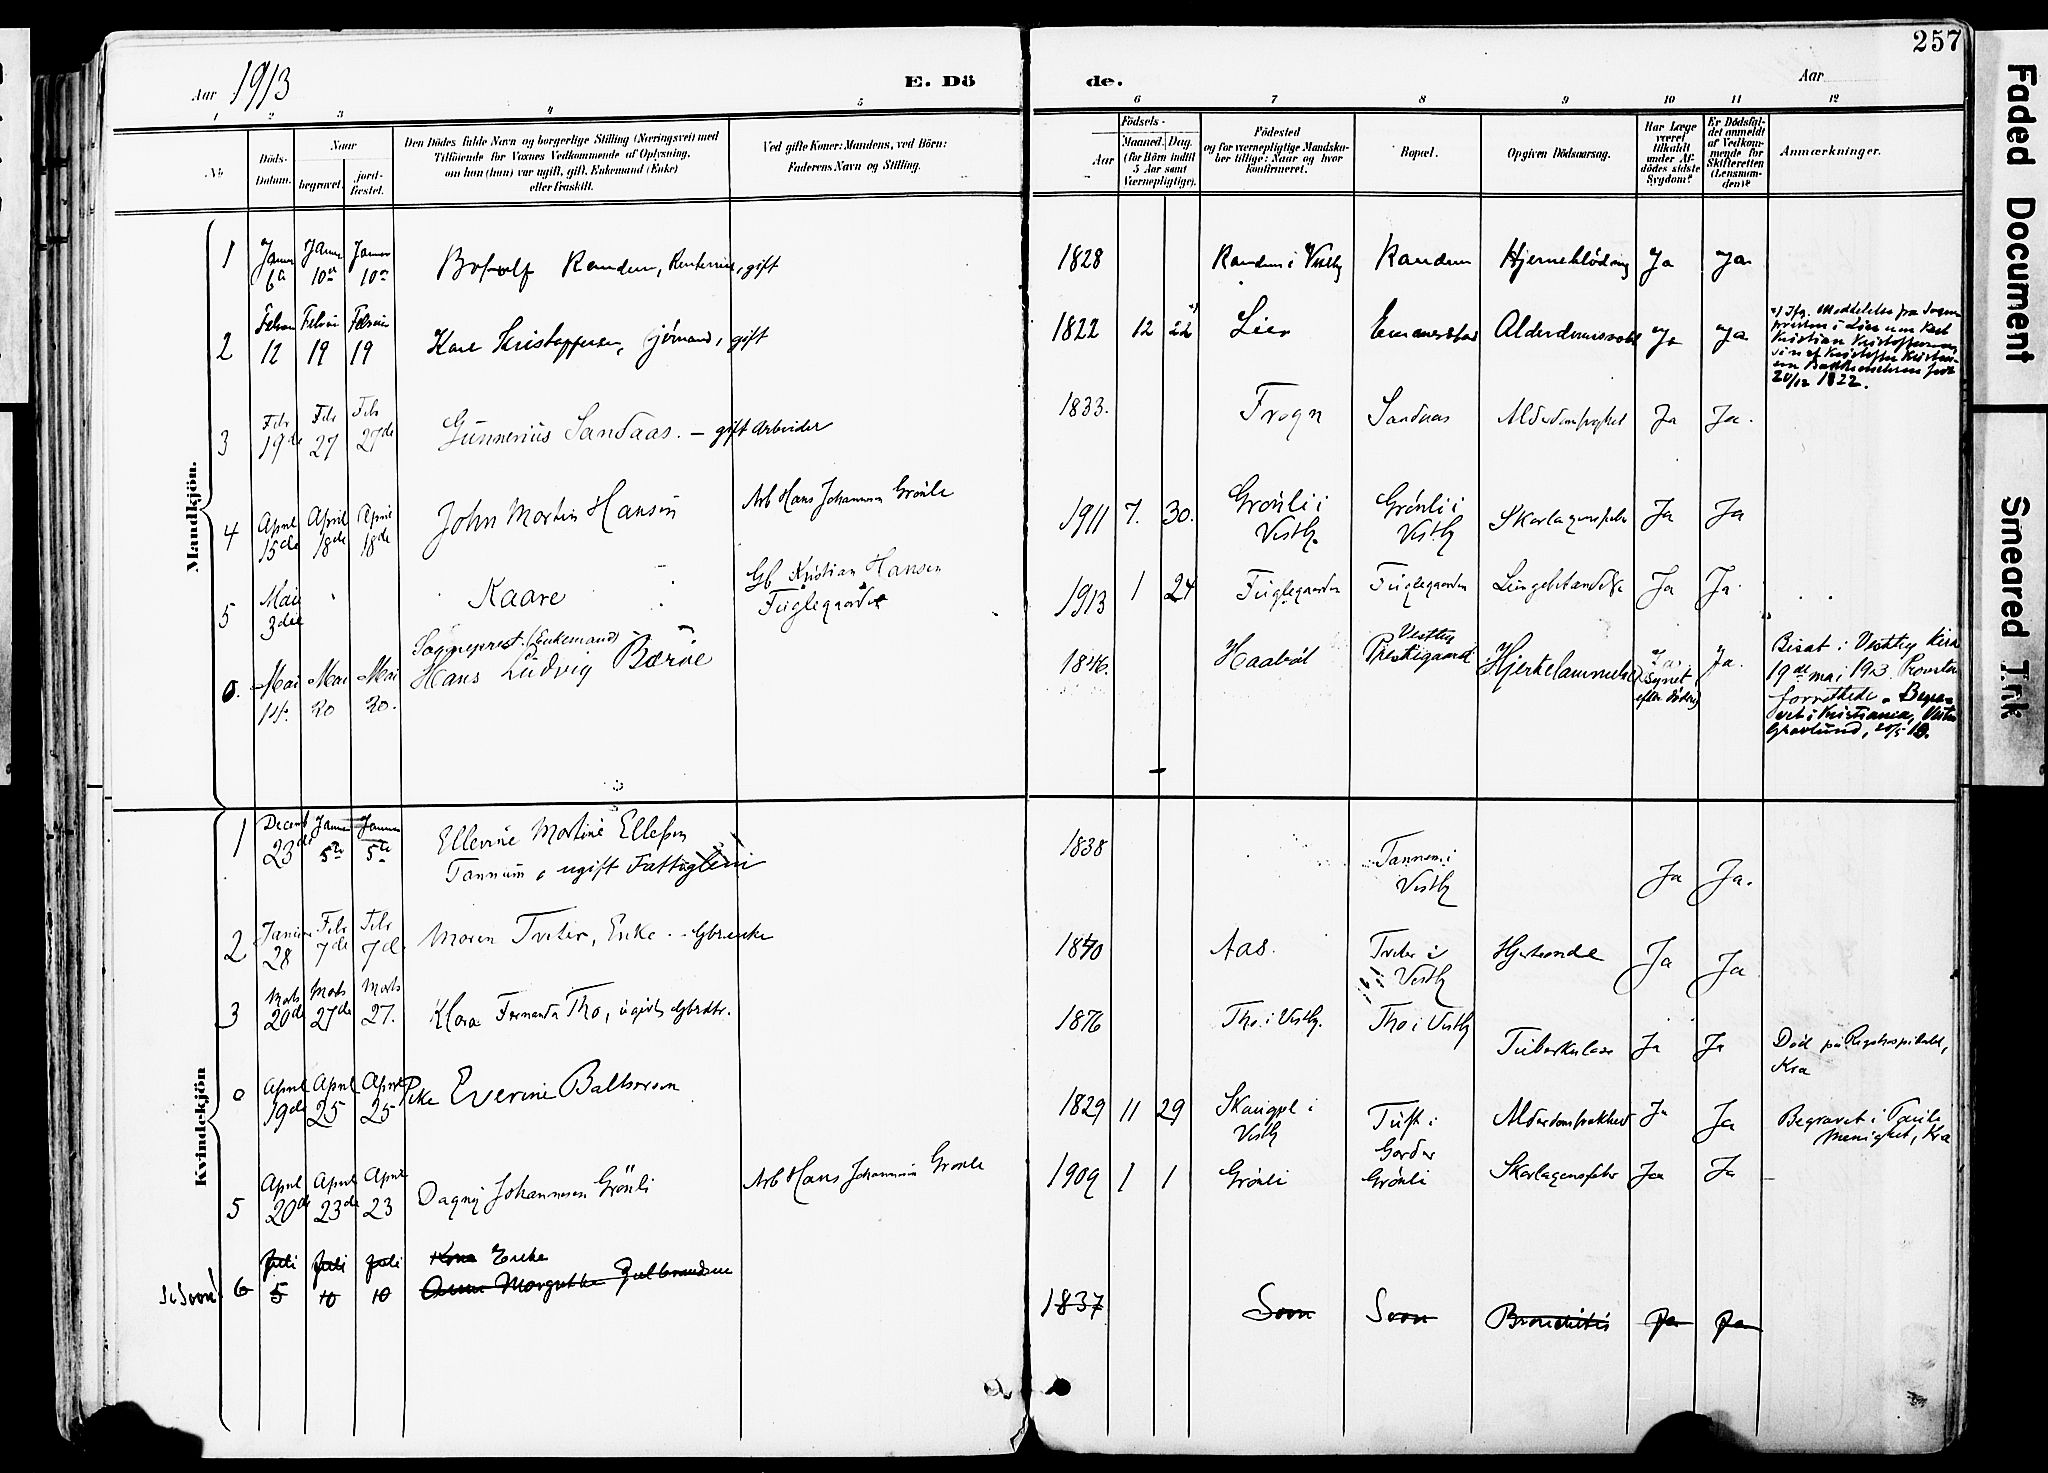 257
Aar 1913
E. Dö
de.
Aar
1 2 3 4 5 6 7 8 9 10 11 12
No
Döds-Datum.
Naar
begravet.
jord-fæstet.
Den Dödes fulde Navn og borgerlige Stilling (Næringsvei) med
Tilföiende for Voxnes Vedkommende af Oplysning,
om han (hun) var ugift, gift, Enkemand (Enke)
eller fraskilt.
Ved gifte Koner: Mandens, ved Börn:
Faderens Navn og Stilling.
Födsels-
Aar
Maaned. Dag.
(for Börn indtil
5 Aar samt
Værnepligtige).
Födested
og for værnepligtige Mandska-
ber tillige: Naar og hvor
konfirmeret.
Bopæl.
Opgiven Dödsaarsag.
Har Læge
været
tilkaldt
under Af-
dödes sidste
Sygdom?
Er Dödsfal-
det anmeldt
af Vedkom-
mende for
Skifteretten
(Lensman-
den)?
Anmærkninger.
Mandkjön.
1 6 10 10 Randem, gift 1828 Randem i Vestby Randem Hjerneblödning Ja Ja
2 12 19 19 Kristoffersen, gift 1822 12 22 Lier Alderdomssvak Ja Ja
Kristian Kristoffersen
20/12 1822.
3 Feb 19de Feb 27 Feb 27de Gunnerius Sandaas. – gift Arbeider 1833. Frogn Sandaas Ja Ja.
4 April 15de April 18de April 18de John Martin Hansen Arb Hans Johannesen Grönli 1911 7. 30. Grönli i Vestby. Grönli i Vestby Skarlagensfeber Ja Ja
5 Mai 3die Kaare Gb Kristian Hansen Fuglegaarden 1913 1 24 Fuglegaarden Fuglegaarden Lungebetændelse Ja Ja.
6. Mai 14. Mai 20 Mai 20. Sogneprest. (Enkemand) Hans Ludvig Bærøe 1846. Haabøl Vestby Prestegaard Hjertelammelse Ja. Synet efter Døden) Ja.
Bisat i Vestby Kirke
19de mai 1913 Provsten
forrettede. Begra-
vet i Kristiania, Vestre
Gravlund, 20/5 13.
Kvindekjön
1 Decemb 23de 5te 5te Ellevine Martine Ellefsen
Tannum, ugift Fattiglem 1838 Tannum i Vestby Ja Ja.
2 28 Feb 7de Feb 7de Maren Tveter, Enke. Gbrenke 1840 Aas. Tveter i Vestby Hjerteonde Ja Ja
3 Marts 20de Marts 27de Marts 27. Klara Fernanda Tho, ugift, gbrdtr. 1876 Tho i Vestby. Tho i Vestby Tuberkulose Ja Ja Död på Rigshospitalet,
Kra
April 19de April 25 April 25 Pike Everine Balthersen 1829 11 29 i Vestby Tuft i Garder Ja Ja Begravet i
Menighet, Kra
5 April 20de April 23de April 23 Dagny Johannesen Grönli Arb Hans Johannesen Grönli 1909 1 1 Grönli Grönli Skarlagensfeber Ja Ja
6 Juli 5 Juli 10 Juli 10 Kone Enke
Anna Margrethe Gulbrandsen 1837 Soon Soon Bronchitis Ja Ja
Faded Document
Smeared Ink